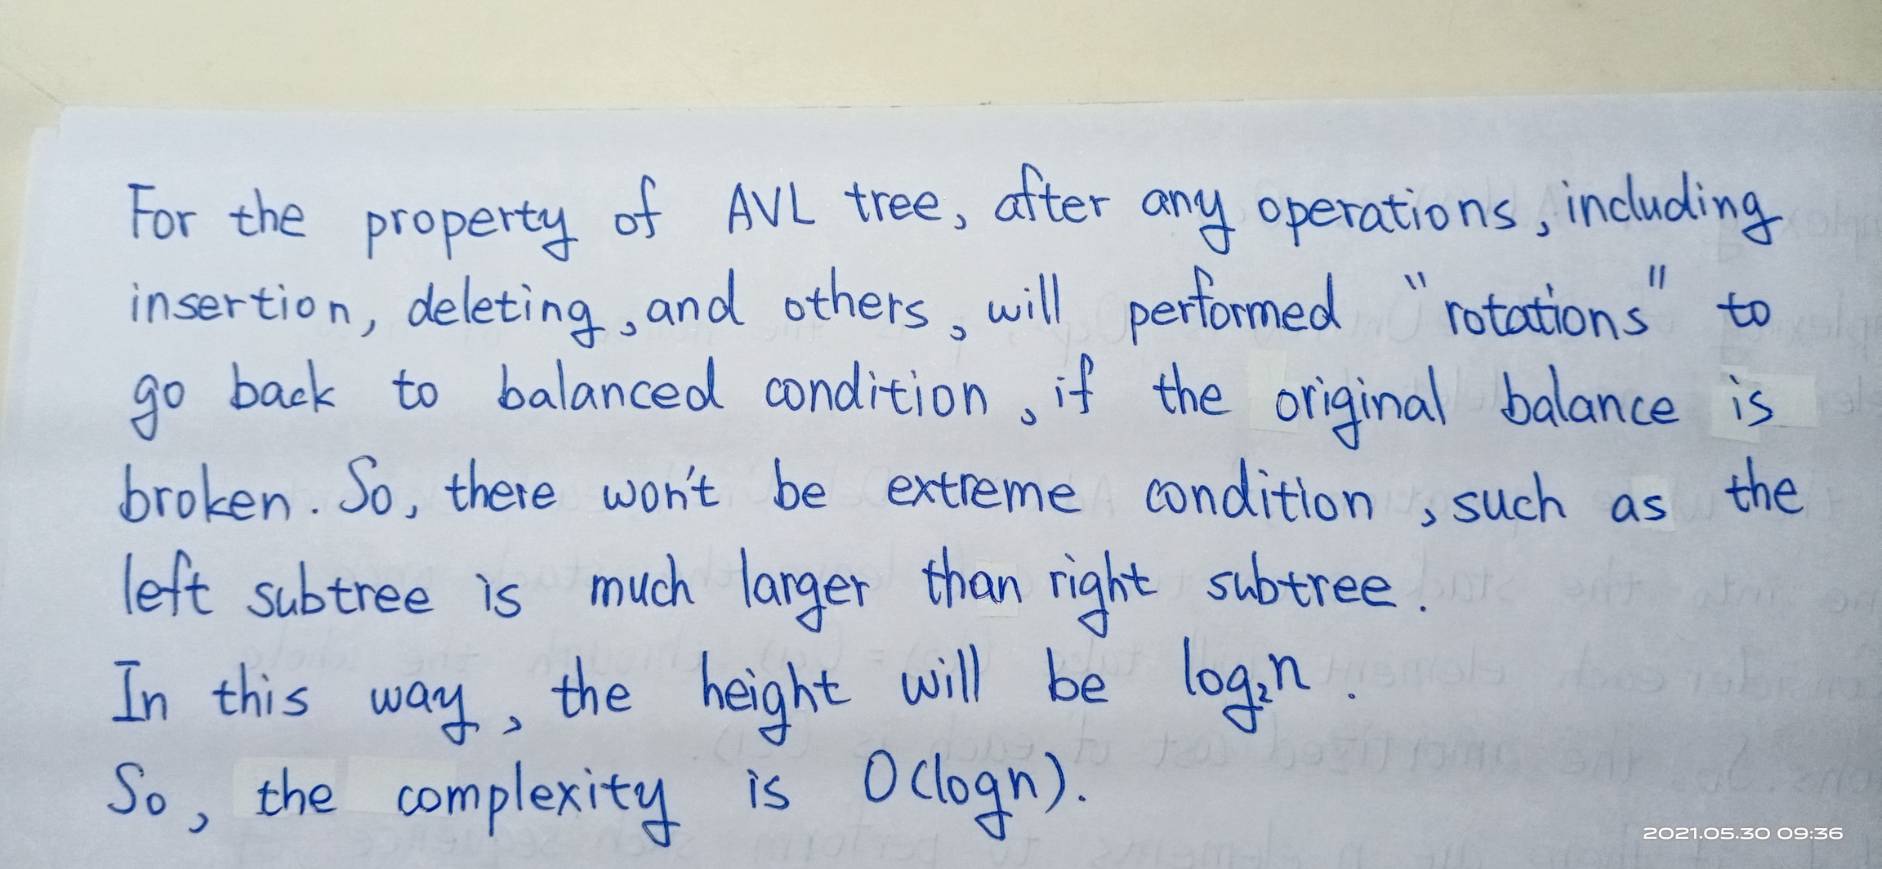 For the property of AVL tree, after any operations, including
insertion, deleting, and others, will performed "rotations" to
go back to balanced condition, if the original balance is
broken. So, there won't be extreme condition, such as the
left subtree is much larger than right subtree.
In this way, the height will be log₂n.
So, the complexity is O(logn).
2021.05.30 09:36